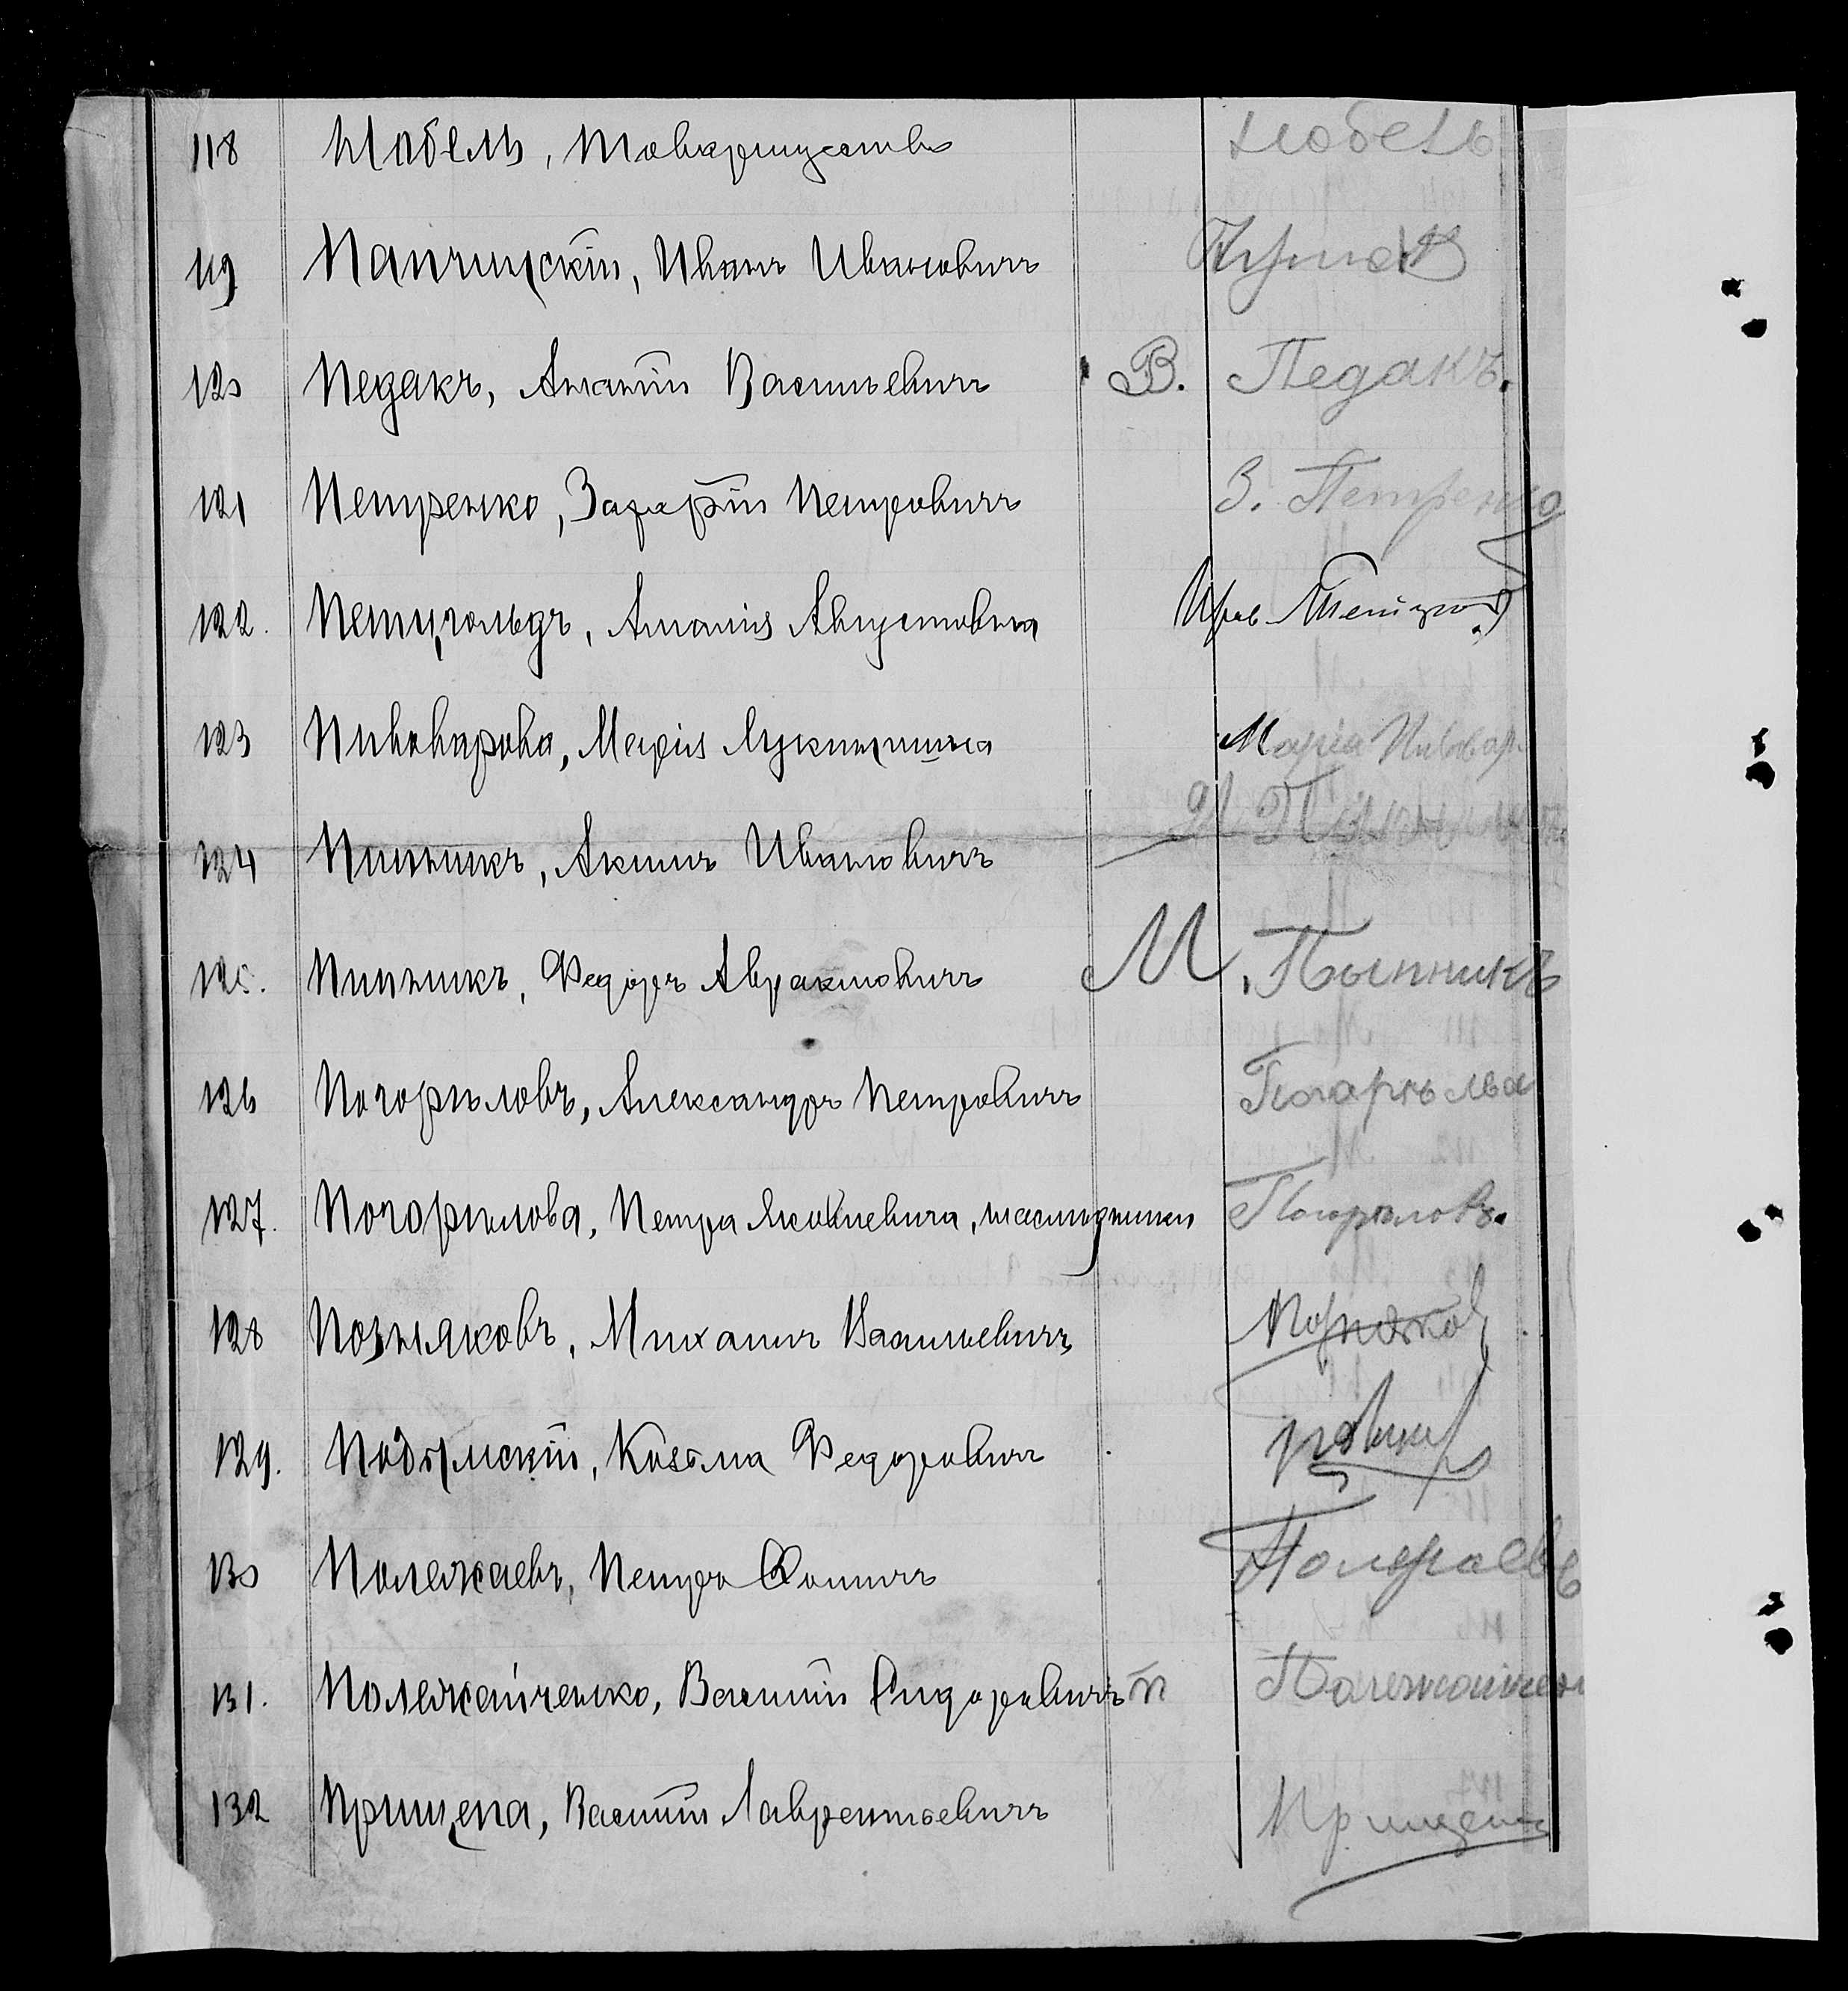 118 Нобель, Товарищество Нобель
119 Папчинскій, Иванъ Ивановичъ
120 Педакъ, Ананій Васильевичъ В. Педакъ.
121 Петренко, Захарій Петровичъ З. Петренко
122. Петцгольдъ, Амалія Августовна
123 Пивоварова, Марія Лукинишна Марія Пивовар
124 Пипникъ, Акимъ Ивановичъ
125. Пипникъ, Федоръ Авраамовичъ М. Пыпникъ
126 Погорѣловъ, Александръ Петровичъ
127. Погорѣлова, Петра Яковлевича, наслѣдники Погорѣловъ.
128 Позняковъ, Михаилъ Васильевичъ
129. Подольскій, Козьма Федоровичъ
130 Полежаевъ, Петръ Фомичъ Полежаевъ
131. Полежайченко, Василій Сидоровичъ П Полежайчен
132 Прищепа, Василій Лаврентьевичъ Прищепа